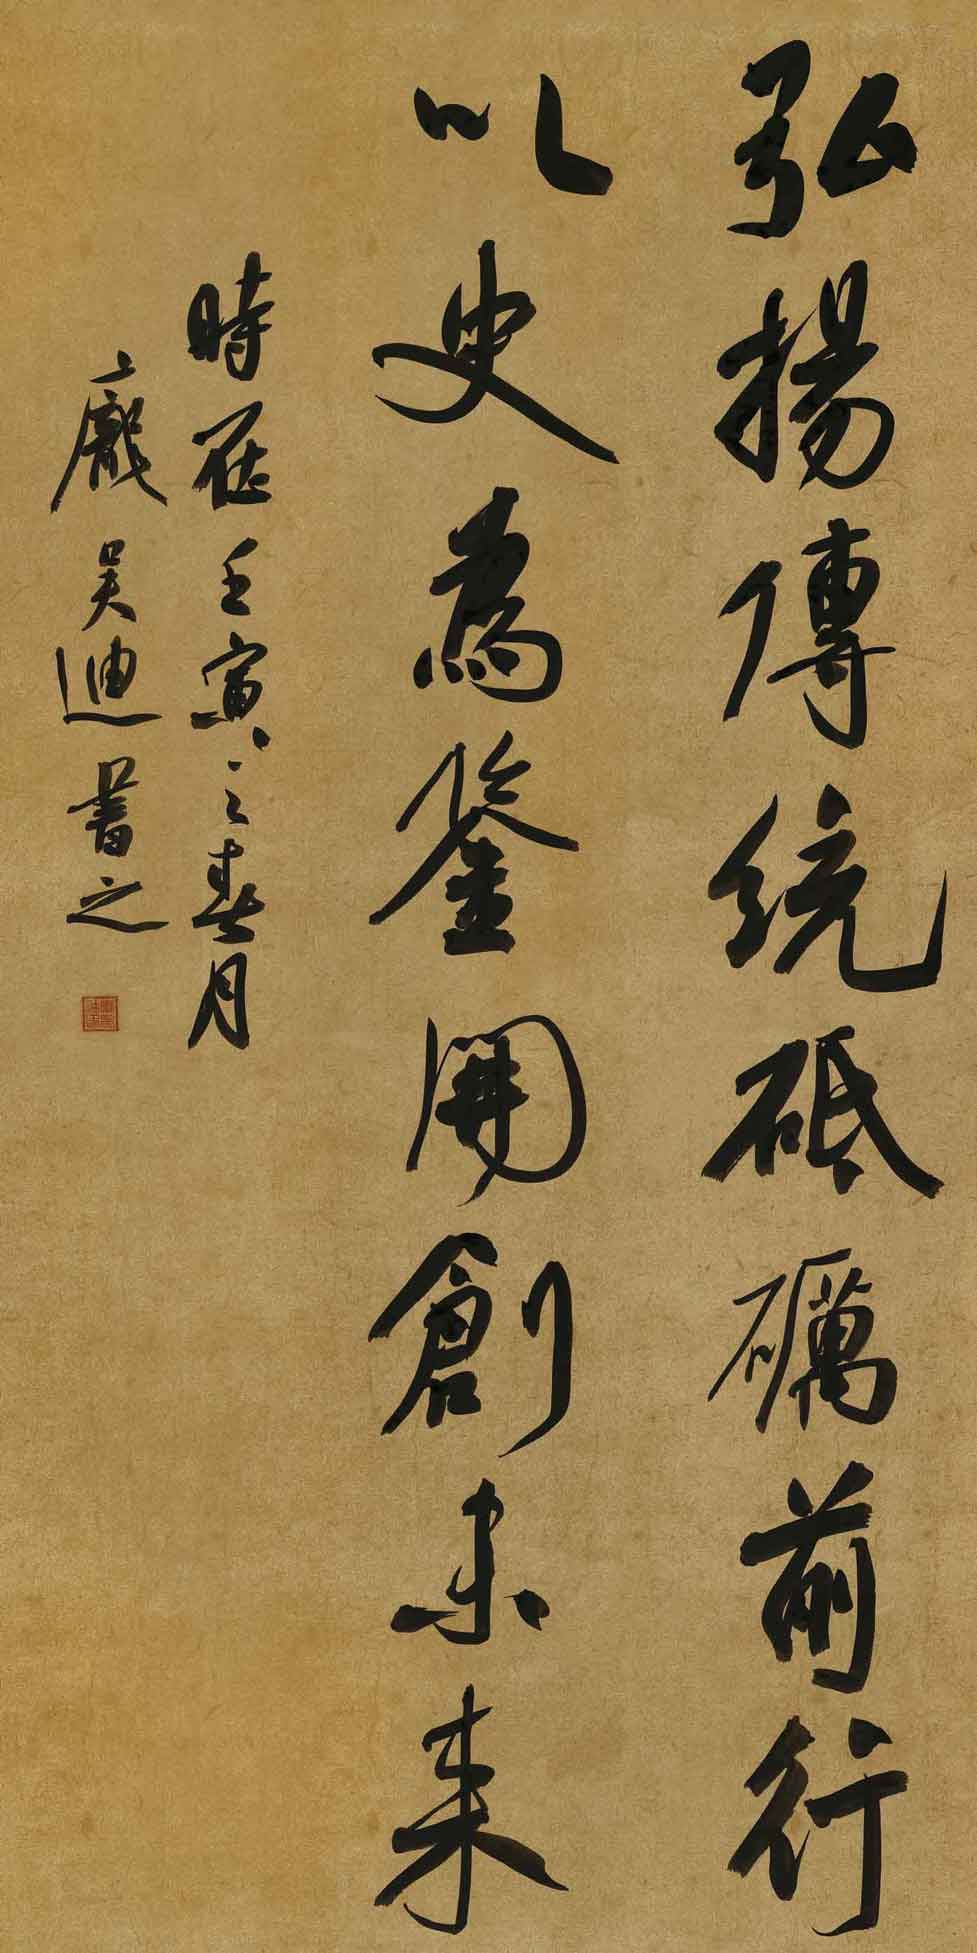 弘揚傳統砥礪前行
以史為鑒開創未来
時在壬寅之春月
龐吴迪書之